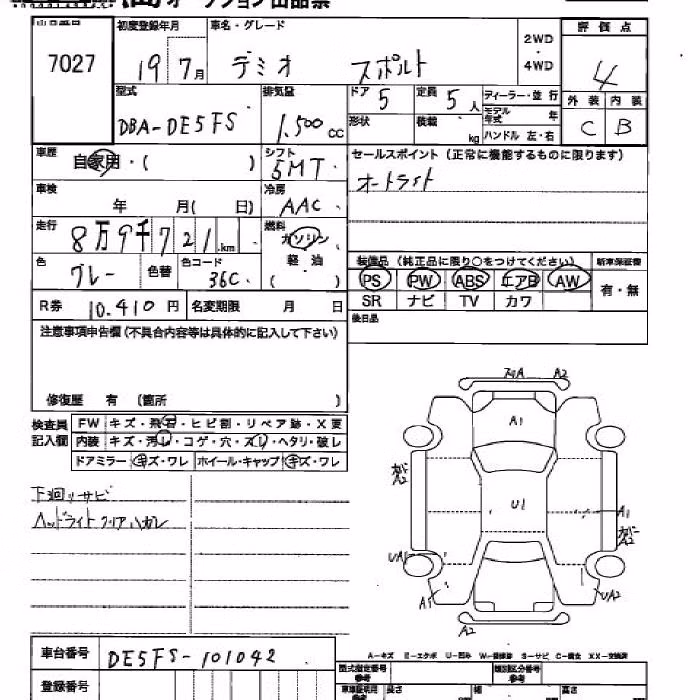 オークション出品票
出品番号 初度登録年月 車名・グレード 2WD・4WD 評価点
7027 19 7月 デミオ スポルト 4
型式 排気量 ドア 5 定員 5人 ディーラー・並行 外装 内装
DBA-DE5FS 1.500cc 形状 積載 kg モデル年式 年 C B
ハンドル 左・右
車歴 自家用・( ) シフト 5MT. セールスポイント (正常に機能するものに限ります)
車検 年 月( 日) 冷房 AAC. オートライト
走行 8万9千721.km 燃料 ガソリン、軽油 ( )
色 グレー 色替 色コード 36C. 装備品 (純正品に限り○をつけてください) 新車保証書
PS PW ABS エアB AW 有・無
SR ナビ TV カワ
R券 10.410円 名変期限 月 日 後日品
注意事項申告欄 (不具合内容等は具体的に記入して下さい)
修復歴 有 (箇所 )
検査員記入欄 FW キズ・飛石・ヒビ割・リペア跡・X要
内装 キズ・汚レ・コゲ・穴・スレ・ヘタリ・破レ
ドアミラー キズ・ワレ ホイール・キャップ キズ・ワレ
下廻リサビ
ヘッドライトクリアハガレ
A2
A1
A2
U1
A1
A2
UA1
A1
UA2
A2
A-キズ E-エクボ U-凹み W-補修跡 S-サビ C-腐食 XX-交換済
車台番号 DE5FS-101042 型式指定番号 参考 類別区分番号 参考
登録番号 車車証明用 参考 長さ 幅 高さ